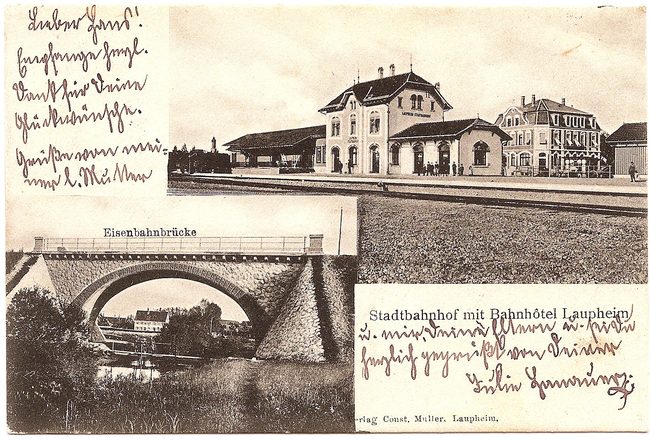 Lieber Hans!
Empfange herzl.
Dank für Deine
Glückwünsche.
Grüße von mei-
ner l. Mutter
Eisenbahnbrücke
Stadtbahnhof mit Bahnhôtel Laupheim
u. mir, Deine Eltern u. seide
herzlich gegrüßt von Deiner
Julie
rlag Const. Muller. Laupheim.